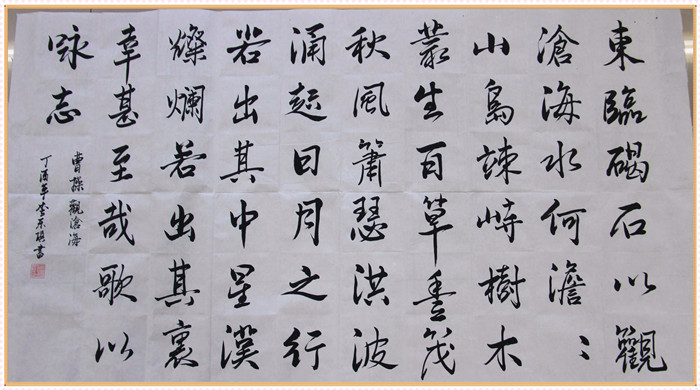 東臨碣石以觀
滄海水何澹：
山島竦峙樹木
叢生百草豊茂
秋風蕭瑟洪波
涌起日月之行
若出其中星漢
燦爛若出其裏
幸甚至哉歌以
咏志
曹操觀滄海
丁酉年書